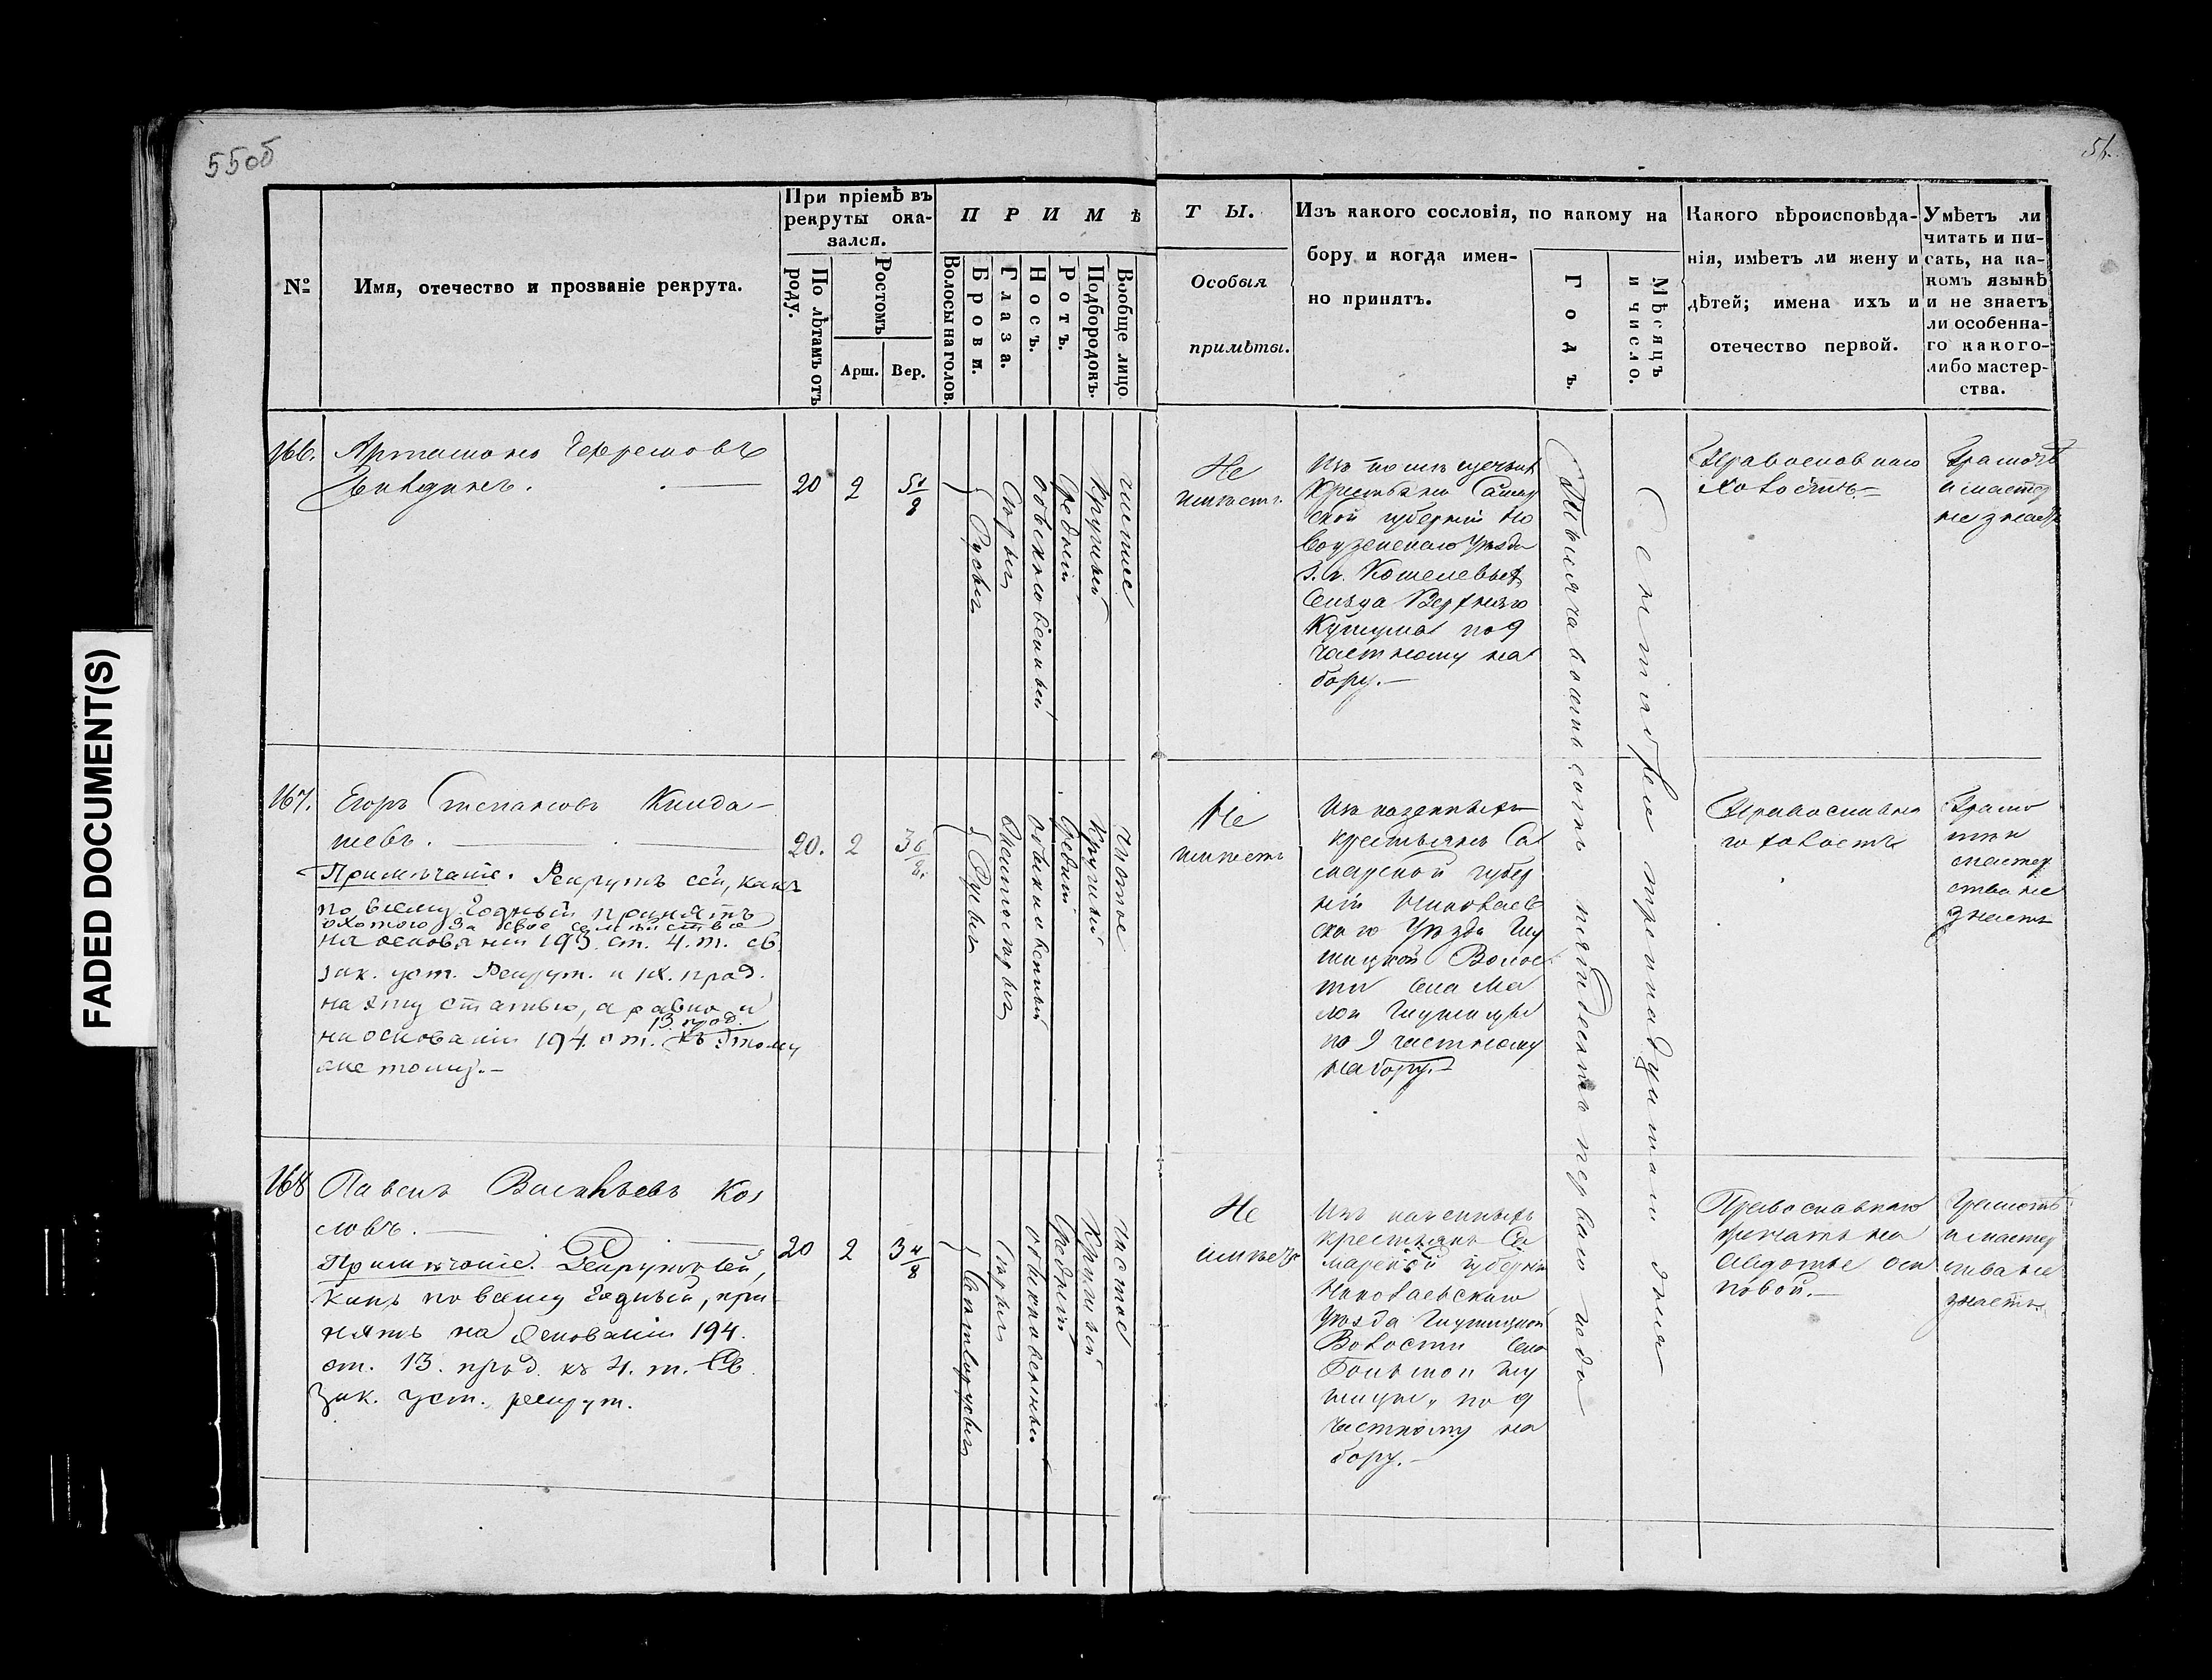 55об
51.
FADED DOCUMENT(S)
№
Имя, отечество и прозваніе рекрута.
При пріемѣ въ
рекруты ока-
зался.
По лѣтамъ отъ
роду.
Ростомъ
Арш.
Вер.
П Р И М Ѣ
Волосы на голов.
Брови.
Глаза.
Носъ.
Ротъ.
Подбородокъ.
Вообще лицо
Т Ы.
Особыя
примѣты.
Изъ какого сословія, по какому на
бору и когда имен-
но принятъ.
Годъ.
Мѣсяцъ
и число.
Какого вѣроисповѣда-
нія, имѣетъ ли жену и
дѣтей; имена ихъ и
отечество первой.
Умѣетъ ли
читать и пи-
сать, на ка-
комъ языкѣ
и не знаетъ
ли особенна-
го какого-
либо мастер-
ства.
166.
20
2
Русыя
Сѣрыя
обыкновенный
Средній
Круглый
чистое
Не
имѣетъ
Крестьянъ Самар
ской губерніи Но
воузенскаго Уѣзда
Кошелевыхъ
Верхняго
Кушума по 9
частному на
бору.—
Тысяча восемь сотъ пятьдесятъ перваго года
Сентября тринадцатаго дня
Православнаго
холостъ
Грамотѣ
и мастер
не знаетъ
167.
Егоръ Степановъ Кинда-
шевъ.
Примѣчаніе. Рекрутъ сей, какъ
по всему годный принятъ
охотою за свое семейство
на основаніи 193 ст. 4. т. св.
зак. уст. Рекрут. и IX. прод.
на эту статью, а равно и
13 прод.
на основаніи 194. ст. къ этому
же тому.—
20.
2
3 6/8.
Русыя
обыкновенный
Средній
Круглый
Чистое
Не
имѣетъ
Изъ казенныхъ
крестьянъ Са
марской губер
ніи Николаев
скаго Уѣзда Глу
шицкой Волос
ти Села Ма
лой Глушицы
по 9 частному
набору.—
Православна
го холостъ
Грамо
тѣ и
мастер
ства не
знаетъ
168
Павелъ Васильевъ Коз
ловъ.
Примѣчаніе. Рекрутъ сей,
какъ по всему годный, при
нятъ на основаніи 194.
ст. 13. прод. къ 4. т. Св.
Зак. уст. рекрут.
20
2
3 4/8
Светлорусыя
Сѣрыя
обыкновенный
Средній
Круглый
Чистое
Не
имѣетъ
Изъ казенныхъ
крестьянъ Са
марской губерніи
Николаевскаго
Уѣзда Глушицкой
Волости Села
Большой Глу
шицы, по 9
частному на
бору.—
Православнаго
женатъ на
Авдотье Оси
повой.—
Грамотѣ
и мастер
ства не
знаетъ.